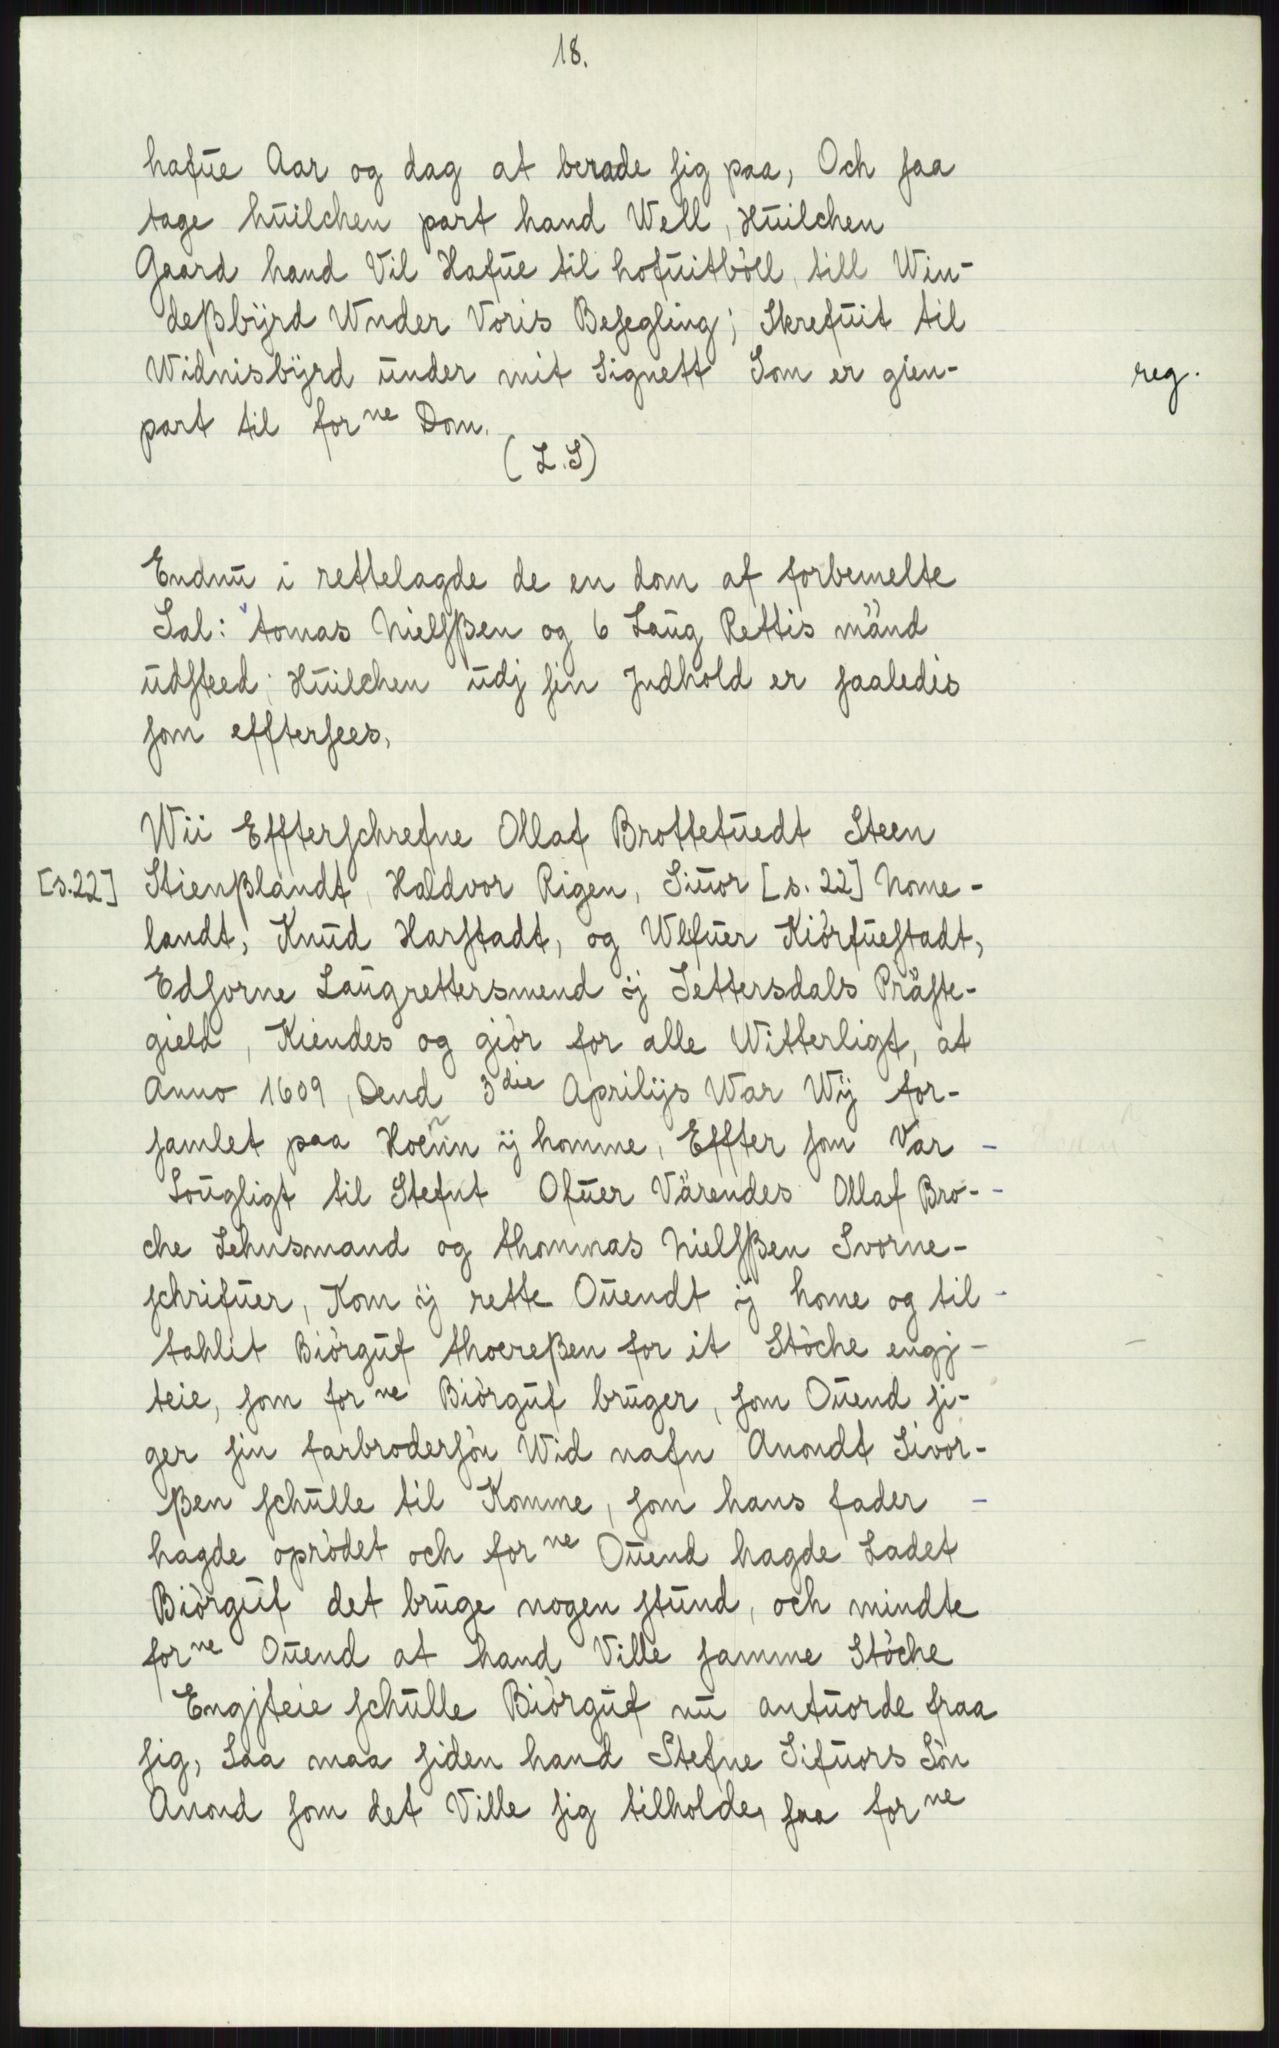 18.
hafue Aar og dag at berade sig paa, Och saa
tage huilchen part hand Well, Huilchen
Gaard hand Vil Hafue til hofuitböll, till Win-
dessbÿrd Wnder Voris Besegling; Skrefuit til
Widnisbÿrd under mit Signett Som er gien- reg.
part til forne Dom.
(L.S)
Endnu i rettelagde de en dom af forbemelte
Sal: tomas Nielsßen og 6 Laug Rettis mänd
udsteed; Huilchen udj sin Jndhold er saaledis
som efftersees,
Wii Effterschrefne Ollaf Brottetuedt Steen
[s.22] Stienßlandt, Haldvor Rigen, Siuor [s. 22] Nome-
landt, Knud Harstadt, og Wlfuer Kiörfuestadt,
Edsorne Laugrettersmend ij Settersdals Präste-
gield, Kiendes og giör for alle Witterligt, at
Anno 1609, Dend 3die Aprilÿs War Wÿ for-
samlet paa Hoeun ij homme, Effter som Var -
Lougligt til Stefnt Ofuer Värendes Ollaf Bro- -
che Lehnsmand og thommas Nielsßen Svorne-
schrifuer, Kom ij rette Ouendt ij home og til -
tahlit Biörguf thoereßen for it Stöche engj -
teie, som forne Biörguf bruger, som Ouend si-
ger sin farbrodersön Wid nafn Anondt Sivor-
ßen schulle til Komme, som hans fader -
hagde oprödet och forne Ouend hagde Ladet
Biörguf det bruge nogen stund, och mindte
forne Ouend at hand Ville samme Stöche
Engjteie schulle Biörguf nu antuorde fraa
sig, Saa maa siden hand Stefne Sifuors Sön
Anond som det Ville sig tilholde, saa forne